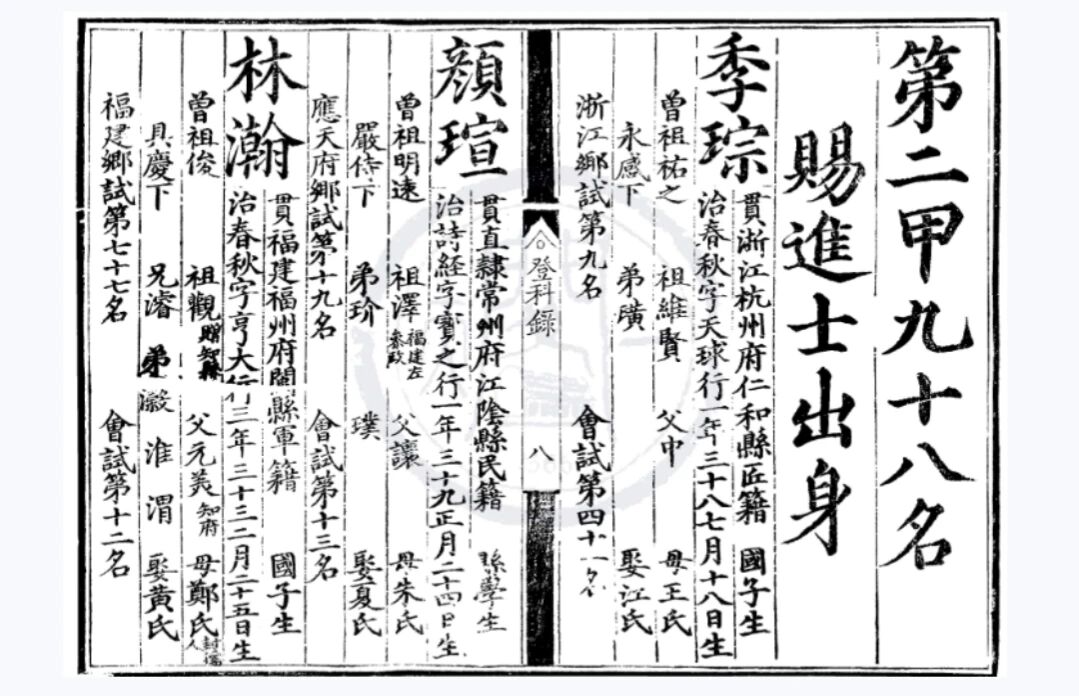 第二甲九十八名
賜進士出身
季琮
貫浙江杭州府仁和縣匠籍 國子生
治春秋字天球行一年三十八七月十八日生
曾祖祐之 祖維賢 父中 母王氏
永感下 弟璜 娶江氏
浙江鄉試第九名 會試第四十一名
登科錄 八
顏瑄
貫直隸常州府江陰縣民籍 縣學生
治詩經字寶之行一年三十九正月二十四日生
曾祖明遠 祖澤 福建左參政 父讓 母朱氏
嚴侍下 弟玠 璞 娶夏氏
應天府鄉試第十九名 會試第十三名
林瀚
貫福建福州府閩縣軍籍 國子生
治春秋字亨大行三年三十三二月二十五日生
曾祖俊 祖觀 贈知縣 父元美 知府 母鄭氏 封孺人
具慶下 兄濬 弟瀫 淮 渭 娶黃氏
福建鄉試第七十七名 會試第十二名